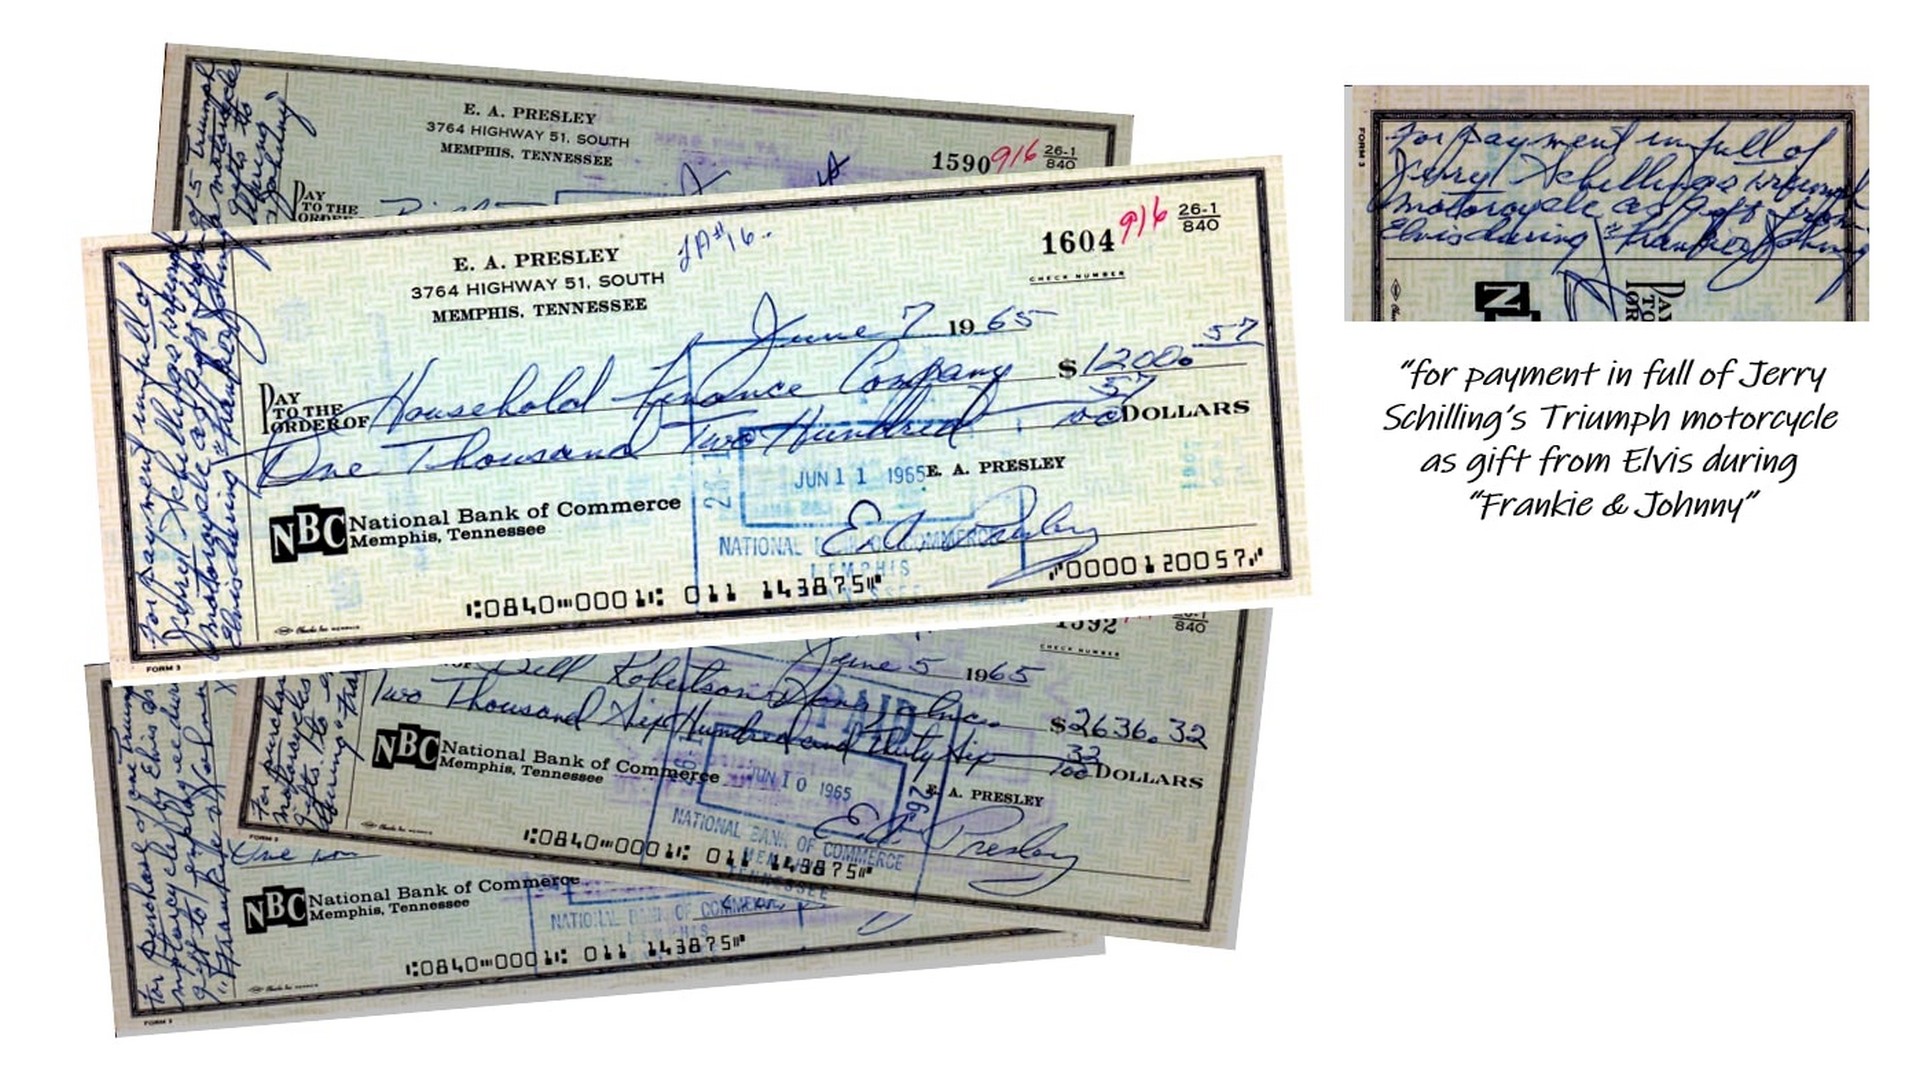 E. A. PRESLEY
3764 HIGHWAY 51, SOUTH
MEMPHIS, TENNESSEE
1590 916 26-1
840
PAY
TO THE
ORDER
E. A. PRESLEY
3764 HIGHWAY 51, SOUTH
MEMPHIS, TENNESSEE
1604 916 26-1
840
CHECK NUMBER
June 7 1965
PAY
TO THE
ORDER OF Household Finance Company $1200.57
One Thousand Two Hundred 57/100 DOLLARS
JUN 11 1965
E. A. PRESLEY
E.A. Presley
NBC National Bank of Commerce
Memphis, Tennessee
NATIONAL BANK OF COMMERCE
MEMPHIS
TENNESSEE
⑆0840⑉0001⑆ 011 143875⑈ ⑇0000120057⑇
FORM 3
for payment in full of
Jerry Schilling's Triumph
motorcycle as gift from
Elvis during "Frankie & Johnny
1592
840
CHECK NUMBER
June 5 1965
Bill Robertson & Sons, Inc. $2636.32
Two Thousand Six Hundred and Thirty Six 32/100 DOLLARS
PAID
JUN 10 1965
E. A. PRESLEY
E.A. Presley
NBC National Bank of Commerce
Memphis, Tennessee
NATIONAL BANK OF COMMERCE
MEMPHIS
TENNESSEE
⑆0840⑉0001⑆ 011 143875⑈
FORM 3
NBC National Bank of Commerce
Memphis, Tennessee
NATIONAL BANK OF COMMERCE
MEMPHIS
⑆0840⑉0001⑆ 011 143875⑈
for purchase of one Triumph
motorcycle by Elvis as
gift to employee during
"Frankie & Johnny
FORM 3
FORM 3
for payment in full of
Jerry Schilling's Triumph
motorcycle as gift from
Elvis during "Frankie & Johnny
PAY
TO
"for payment in full of Jerry
Schilling's Triumph motorcycle
as gift from Elvis during
"Frankie & Johnny"